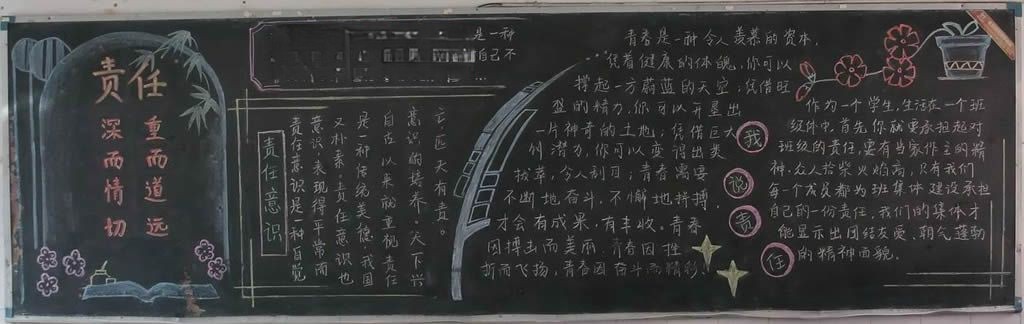 责任
重而道远
深而情切
是一种
自己不
责任意识
亡匹夫有责。
意识的培养。天下兴
自古以来就重视责任
是一种传统美德,我国
又朴素,责任意识也
意识表现得平常而
责任意识是一种自觉
青春是一种令人羡慕的资本,
凭着健康的体魄,你可以
撑起一方蔚蓝的天空;凭借旺
盛的精力,你可以开垦出
一片神奇的土地;凭借巨大
的潜力,你可以变得出类
拔萃,令人刮目;青春需要
不断地奋斗,不懈地拼搏,
才会有成果,有丰收。青春
因搏击而美丽,青春因性
折而飞扬,青春因奋斗而精彩!
我说责任
作为一个学生,生活在一个班
级件中,首先你就要承担起对
班级的责任,要有当家作主的精
神,众人拾柴火焰高,只有我们
每一个成员都为班集体建设承担
自己的一份责任,我们的集体才
能显示出团结友爱、朝气蓬勃
的精神面貌。